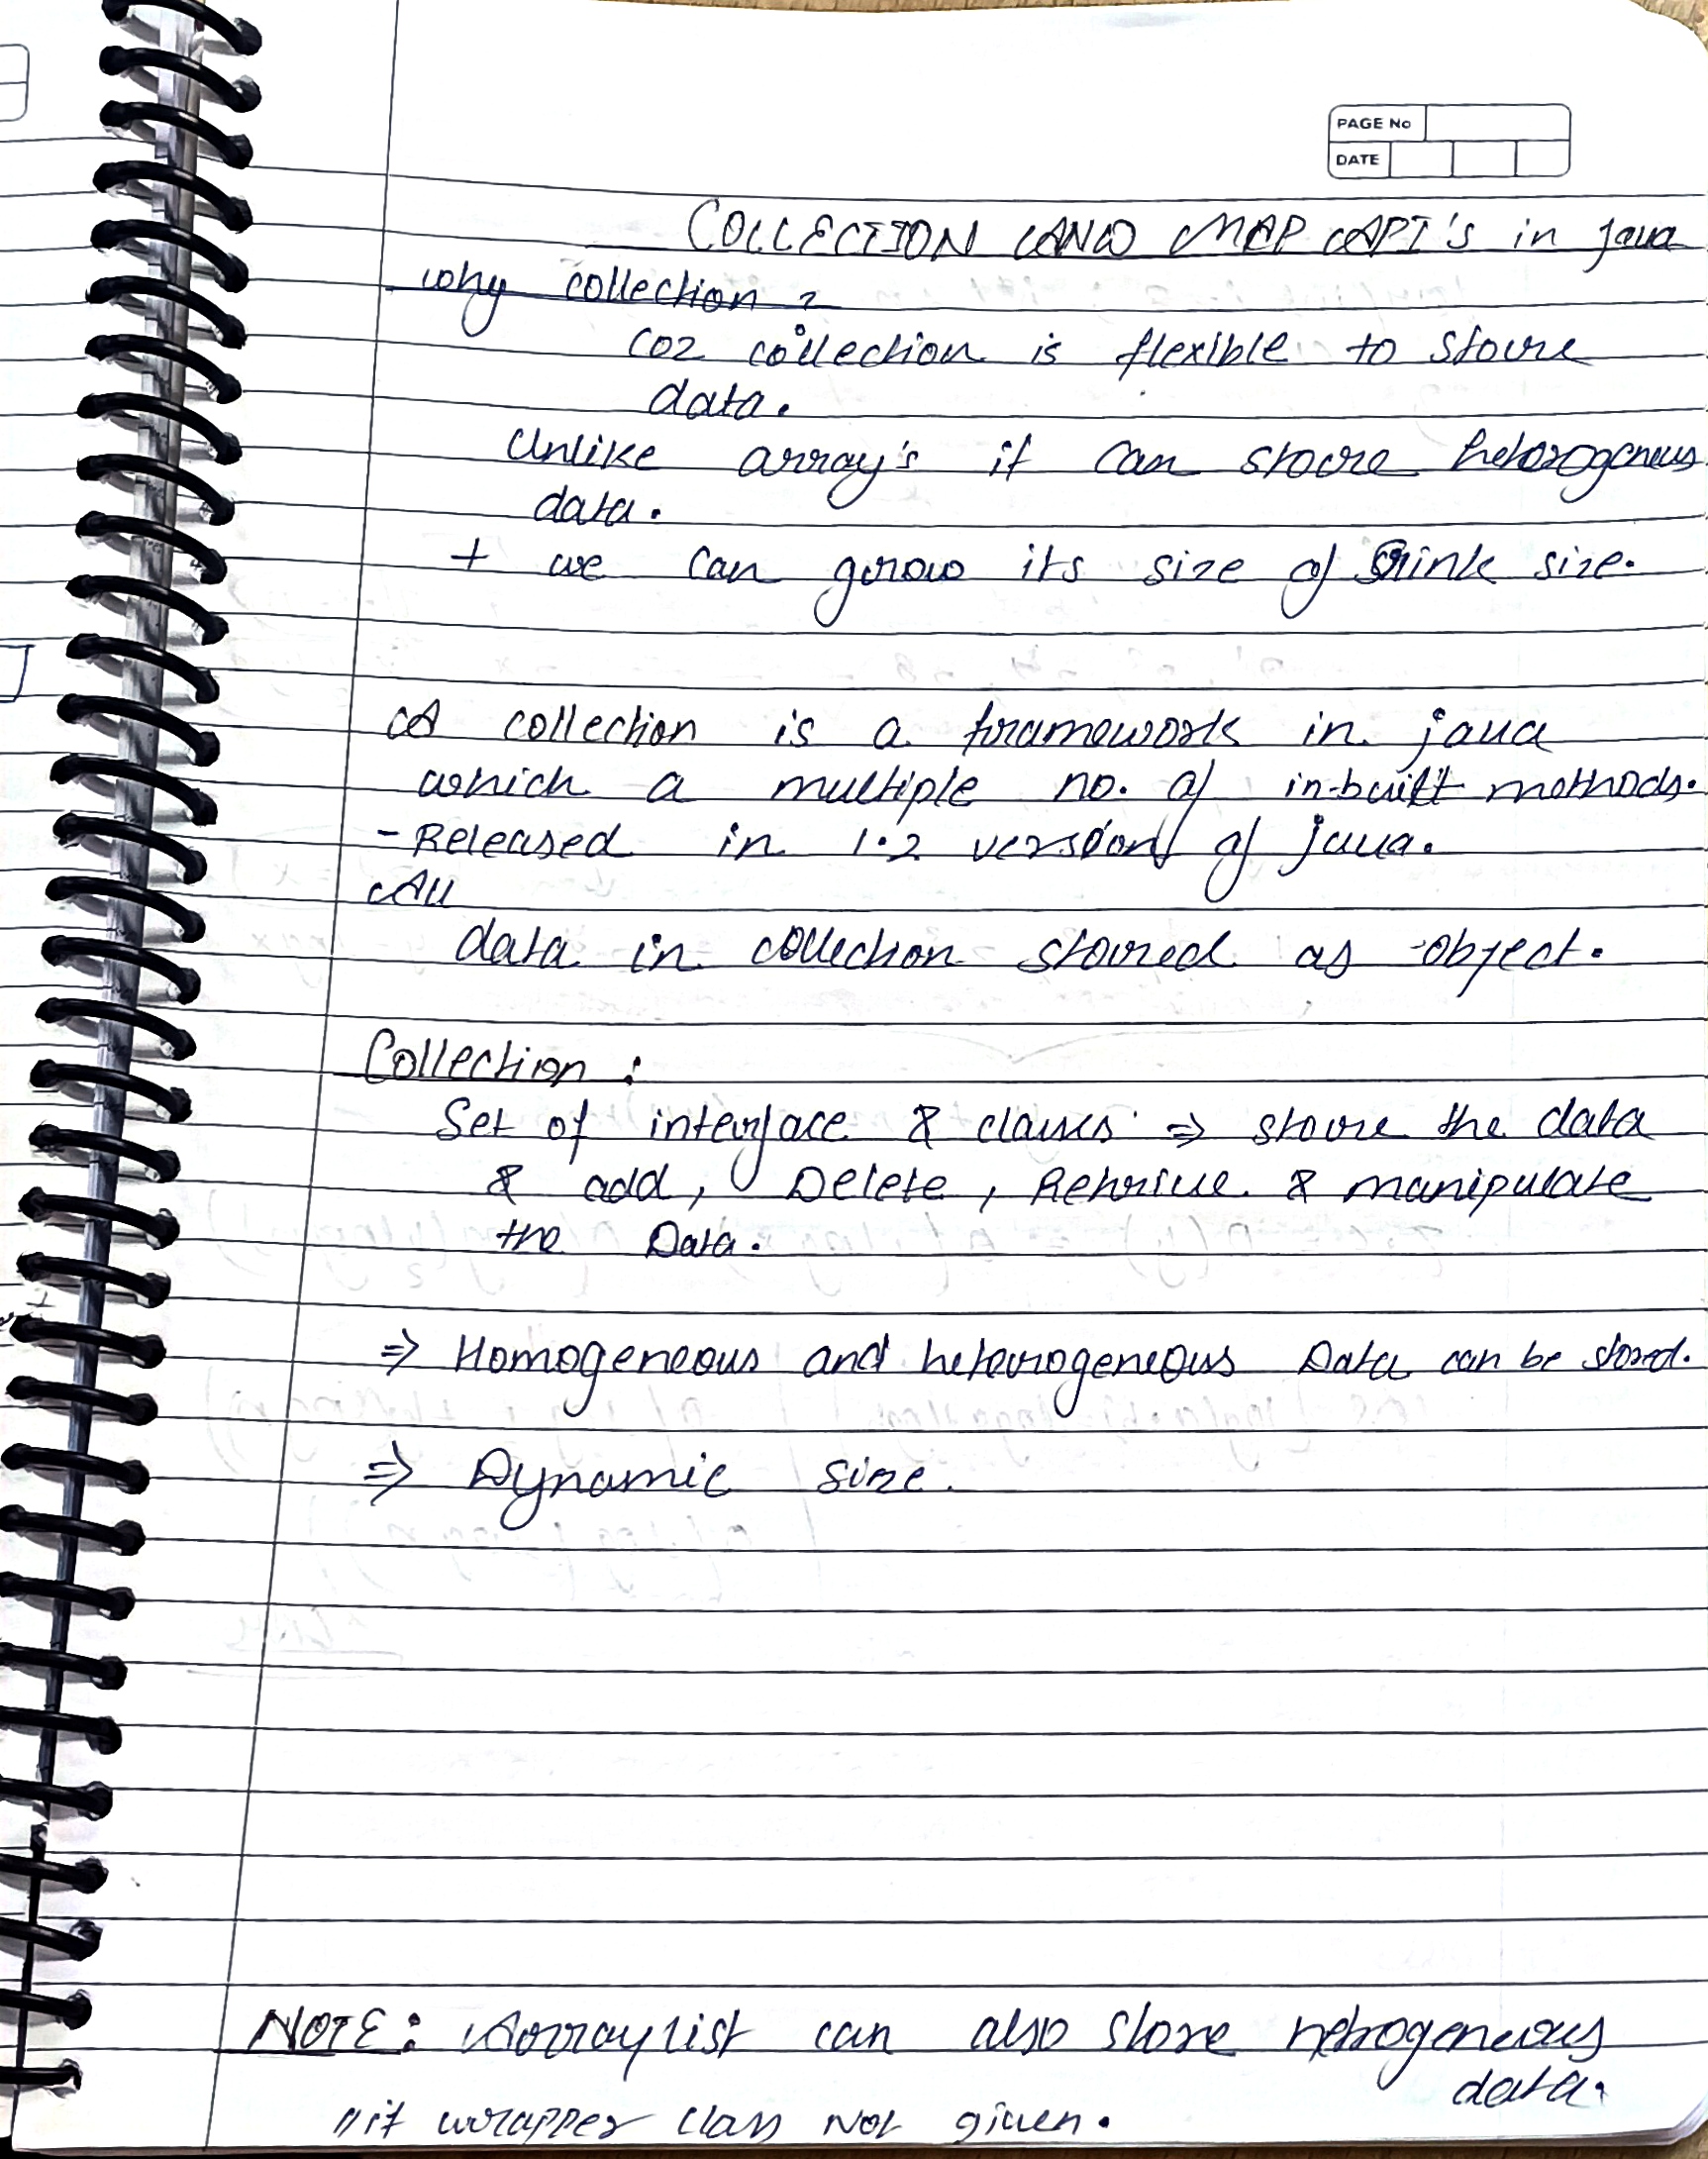 PAGE No
DATE
COLLECTION AND MAP API's in java
why collection ?
coz collection is flexible to store
data.
Unlike array's it can store heterogeneus
data.
+ we can grow its size of Srink size.
A collection is a framework in java
which a multiple no. of in-built methods.
- Released in 1.2 version of java.
All
data in collection stored as object.
Collection :
Set of interface & classes ⇒ store the data
& add, Delete, Retrieve & manipulate
the Data.
⇒ Homogeneous and heterogeneous Data can be stored.
⇒ Dynamic size.
NOTE: Arraylist can also store hetrogeneous
data.
//if wrapper class Not given.